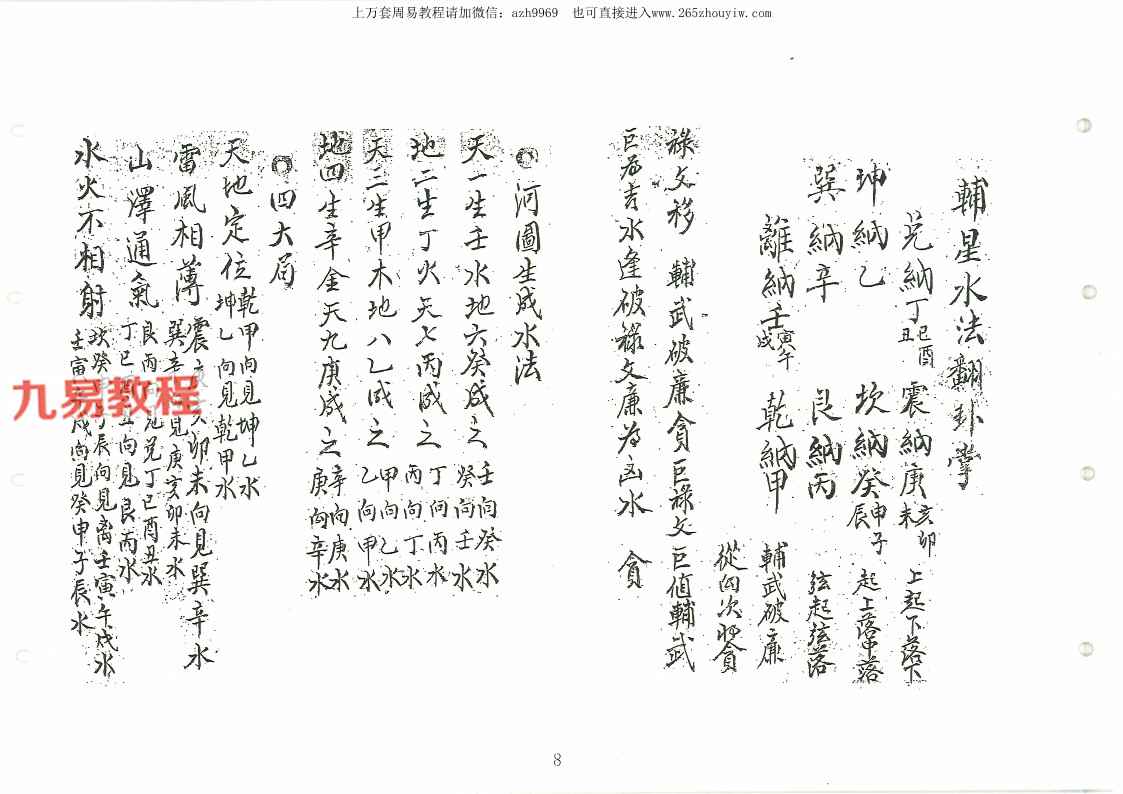 上万套周易教程请加微信：azh9969 也可直接进入www.265zhouyiw.com
輔星水法翻卦掌
兌納丁巳酉丑 震納庚亥卯未 上起下落下
坤納乙 坎納癸申子辰 起上落中落
巽納辛 艮納丙 弦起弦落
離納壬寅午戌 乾納甲 輔武破廉
從 次將貪
祿文移 輔武破廉貪巨祿文巨值輔武
巨為吉水逢破祿文廉為凶水 貪
◎河圖生成水法
天一生壬水地六癸成之 壬向癸水 癸向壬水
地二生丁火天七丙成之 丁向丙水 丙向丁水
天三生甲木地八乙成之 甲向乙水 乙向甲水
地四生辛金天九庚成之 辛向庚水 庚向辛水
◎四大局
天地定位 乾甲向見坤乙水 坤乙向見乾甲水
雷風相薄 震 卯未向見巽辛水 巽辛 見庚亥卯未水
山澤通氣 艮丙 見兌丁巳酉丑水 丁巳 丑向見艮丙水
水火不相射 坎癸 辰向見離壬寅午戌水 壬寅 戌向見癸申子辰水
九易教程
8